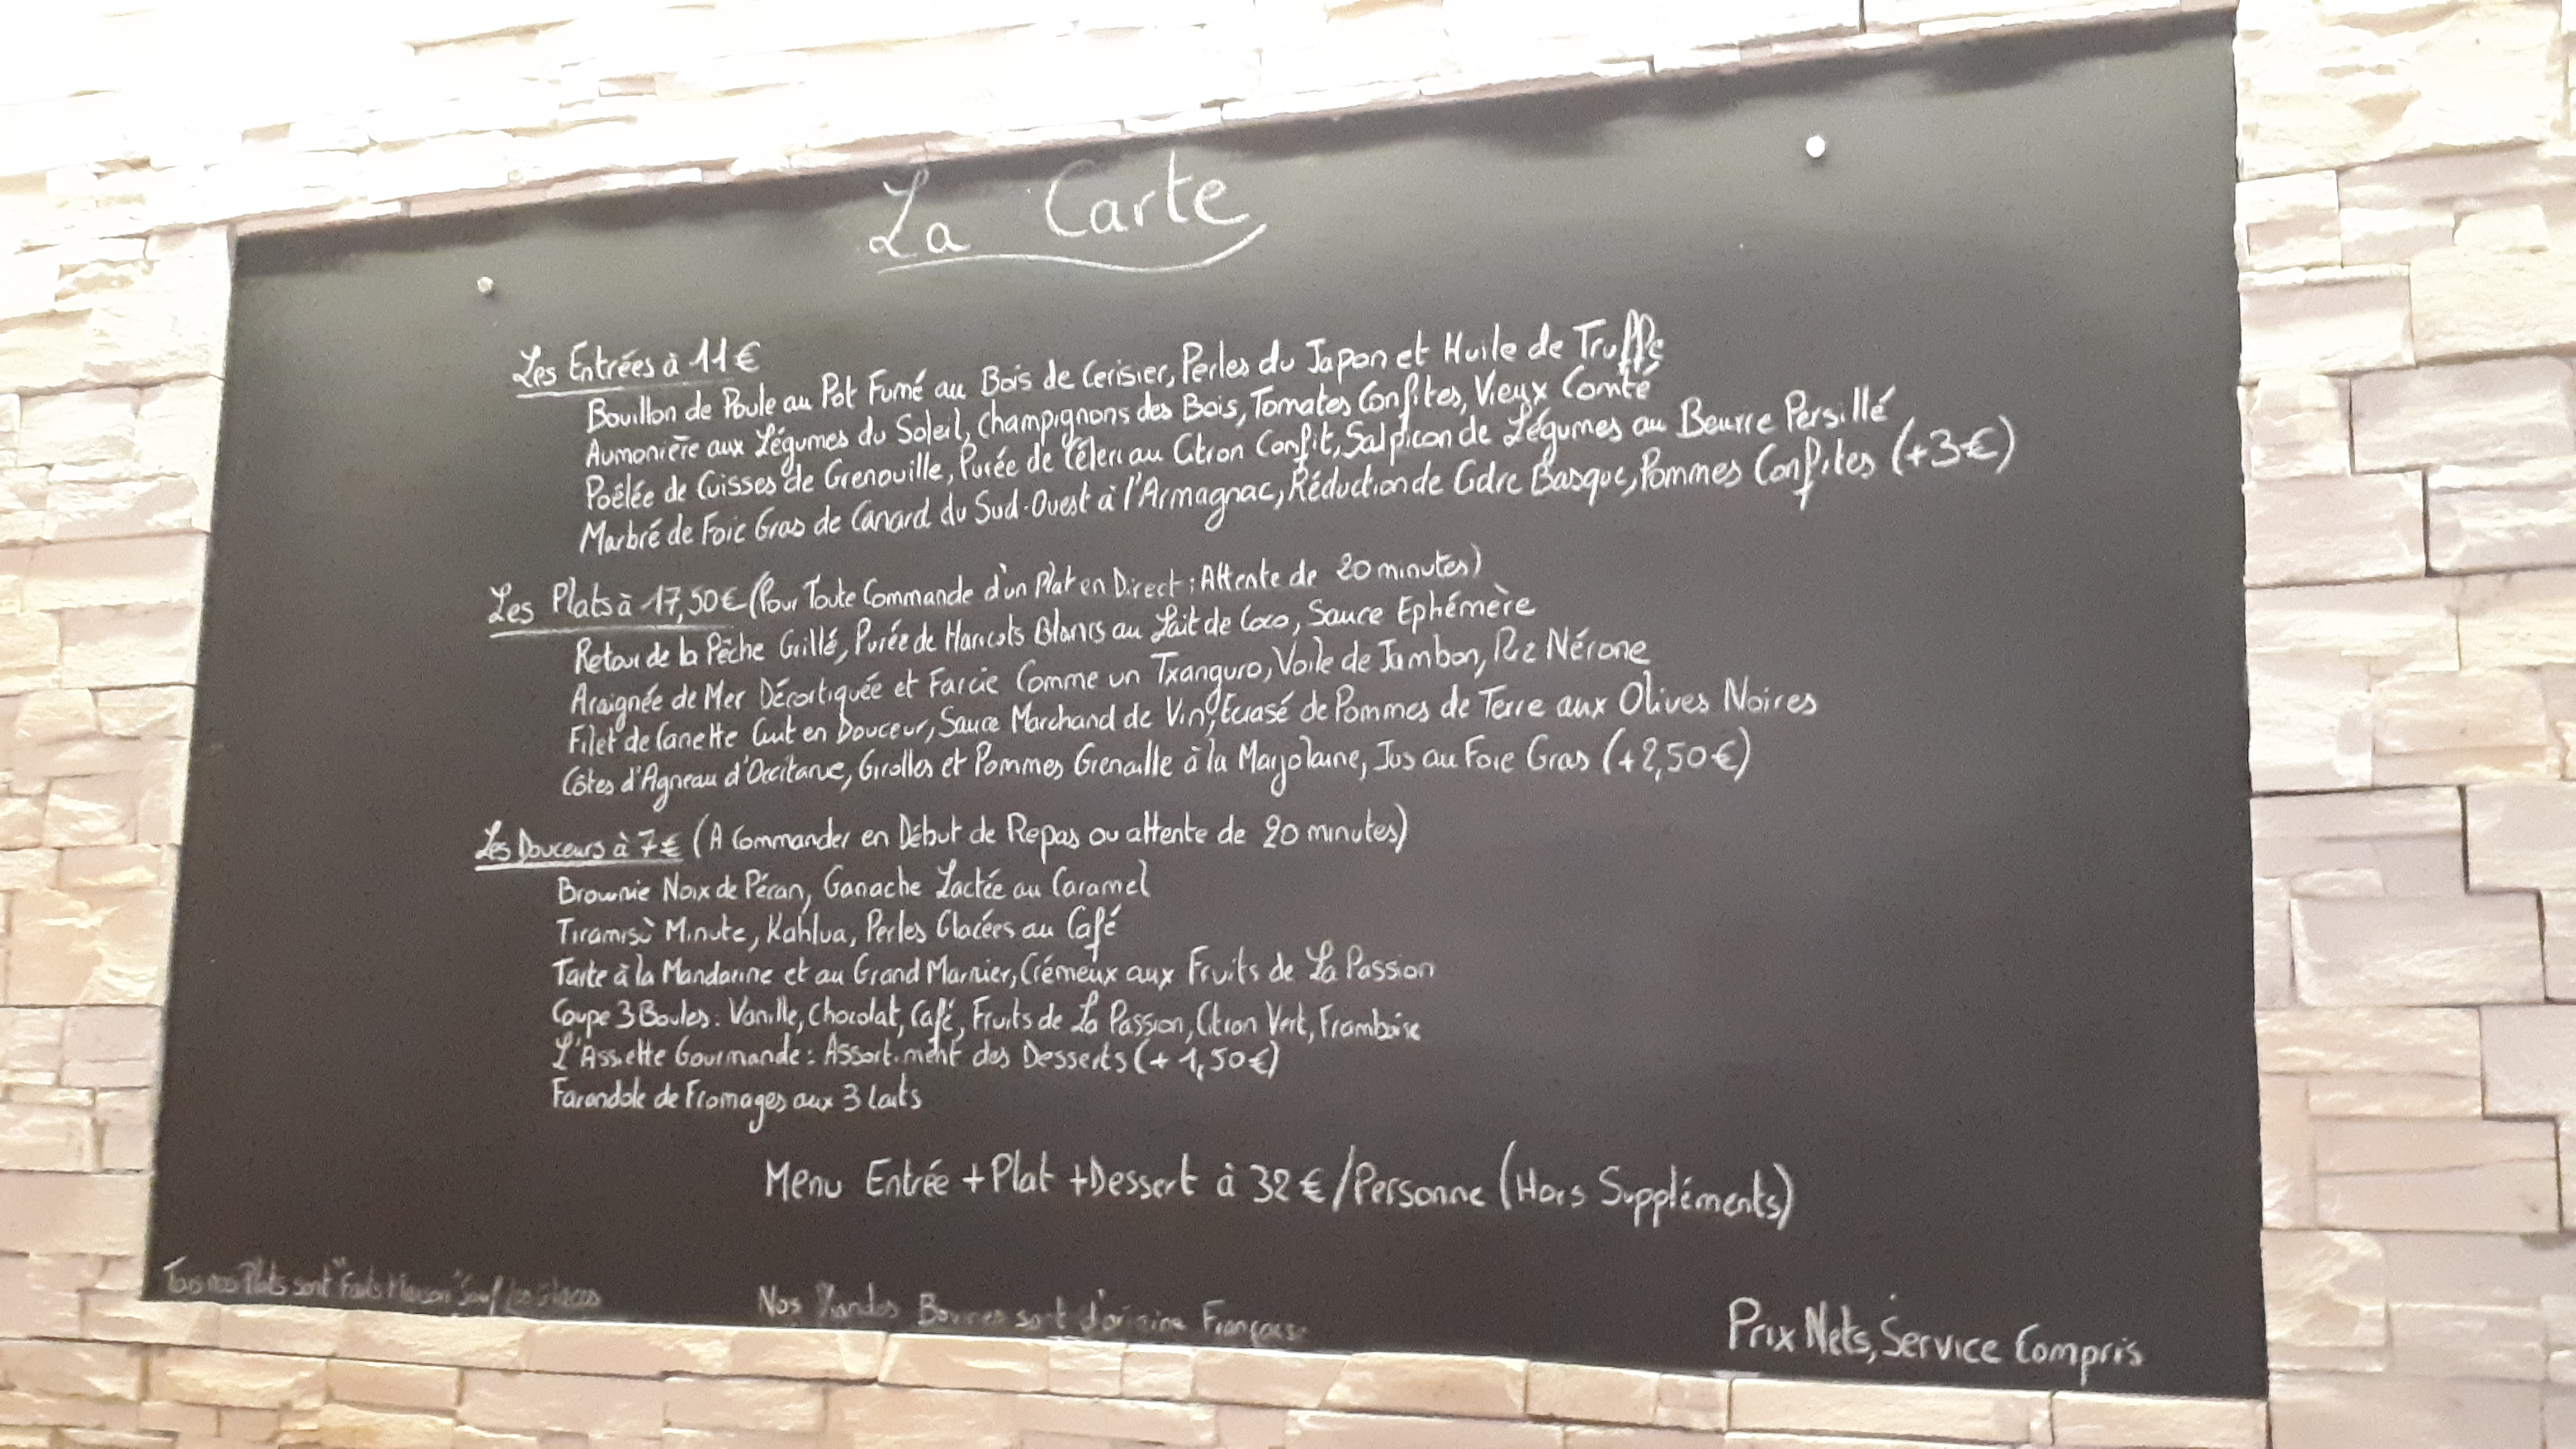 La Carte
Les Entrées à 11€
Bouillon de Poule au Pot Fumé au Bois de Cerisier, Perles du Japon et Huile de Truffe
Aumonière aux Légumes du Soleil, Champignons des Bois, Tomates Confites, Vieux Comté
Poêlée de Cuisses de Grenouille, Purée de Céleri au Citron Confit, Salpicon de Légumes au Beurre Persillé
Marbré de Foie Gras de Canard du Sud-Ouest à l'Armagnac, Réduction de Cidre Basque, Pommes Confites (+3€)
Les Plats à 17,50€ (Pour Toute Commande d'un Plat en Direct : Attente de 20 minutes)
Retour de la Pêche Grillé, Purée de Haricots Blancs au Lait de Coco, Sauce Ephémère
Araignée de Mer Décortiquée et Farcie Comme un Txanguro, Voile de Jambon, Riz Nérone
Filet de Canette Cuit en Douceur, Sauce Marchand de Vin, Ecrasé de Pommes de Terre aux Olives Noires
Côtes d'Agneau d'Occitanie, Girolles et Pommes Grenaille à la Marjolaine, Jus au Foie Gras (+2,50€)
Les Douceurs à 7€ (A Commander en Début de Repas ou attente de 20 minutes)
Brownie Noix de Pécan, Ganache Lactée au Caramel
Tiramisù Minute, Kahlua, Perles Glacées au Café
Tarte à la Mandarine et au Grand Marnier, Crémeux aux Fruits de La Passion
Coupe 3 Boules : Vanille, Chocolat, Café, Fruits de La Passion, Citron Vert, Framboise
L'Assiette Gourmande : Assortiment des Desserts (+ 1,50€)
Farandole de Fromages aux 3 laits
Menu Entrée + Plat + Dessert à 32 €/Personne (Hors Suppléments)
Tous nos Plats sont "Faits Maison" Sauf les Glaces
Nos Viandes Bovines sont d'origine Française
Prix Nets, Service Compris